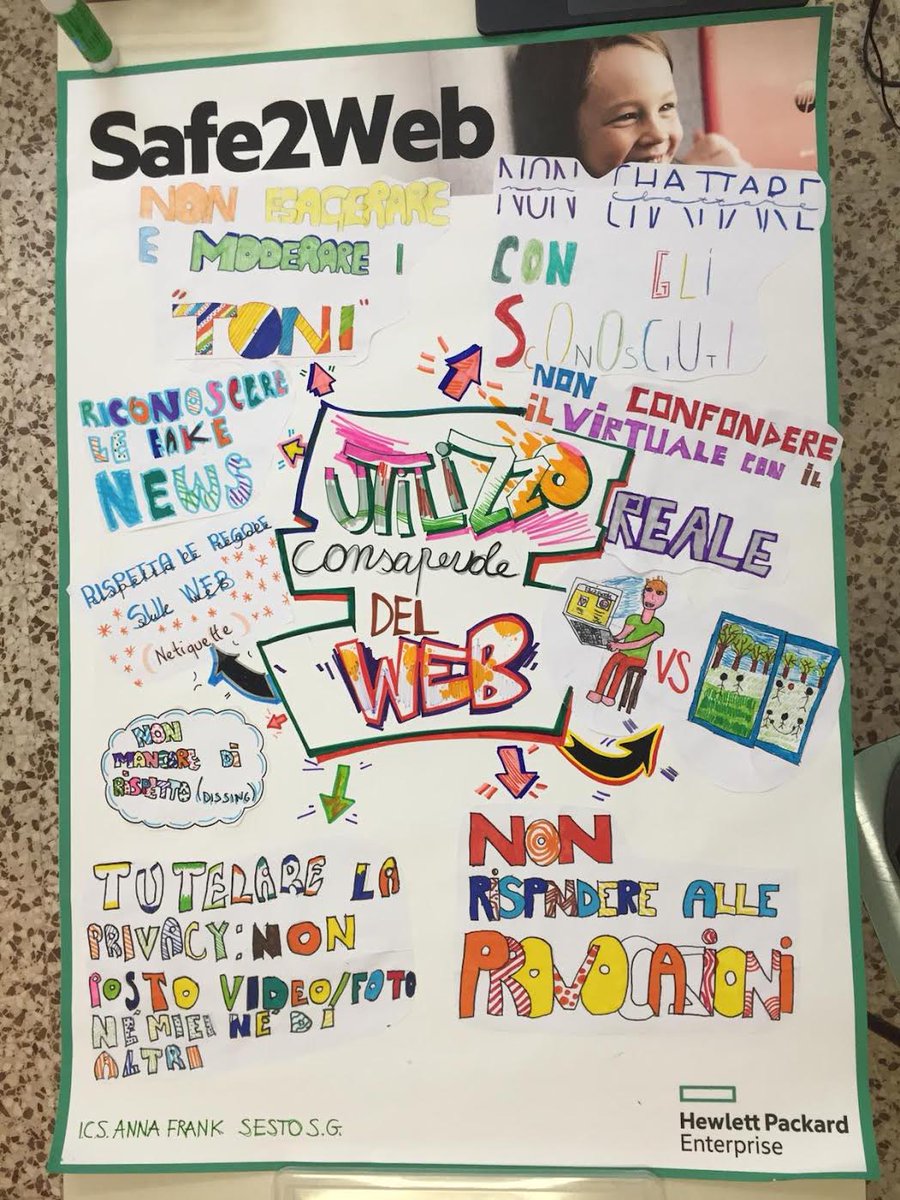 Safe2Web
NON ESAGERARE
E MODERARE I
"TONI"
NON CHATTARE
NON CHATTARE
CON GLI
SCONOSCIUTI
RICONOSCERE
LE FAKE
NEWS
NON CONFONDERE
IL VIRTUALE CON IL
REALE
UTILIZZO
consapevole
DEL
WEB
RISPETTA LE REGOLE
Sulle WEB
(Netiquette)
VS
NON
MANCARE DI
RISPETTO (DISSING)
TUTELARE LA
PRIVACY: NON
POSTO VIDEO/FOTO
NE' MIEI NE' DI
ALTRI
NON
RISPNDERE ALLE
PROVOCAZIONI
I.C.S. ANNA FRANK SESTO S.G.
Hewlett Packard
Enterprise